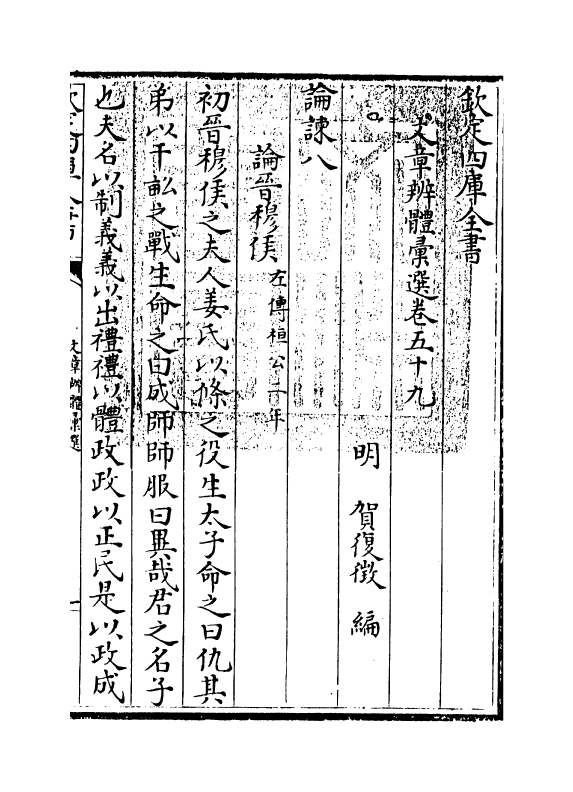 欽定四庫全書
文章辨體彙選卷五十九
明 賀復徵 編
論諫八
論晉穆侯 左傳桓公二年
初晉穆侯之夫人姜氏以條之役生太子命之曰仇其
弟以千畝之戰生命之曰成師師服曰異哉君之名子
也夫名以制義義以出禮禮以體政政以正民是以政成
文章辨體彙選